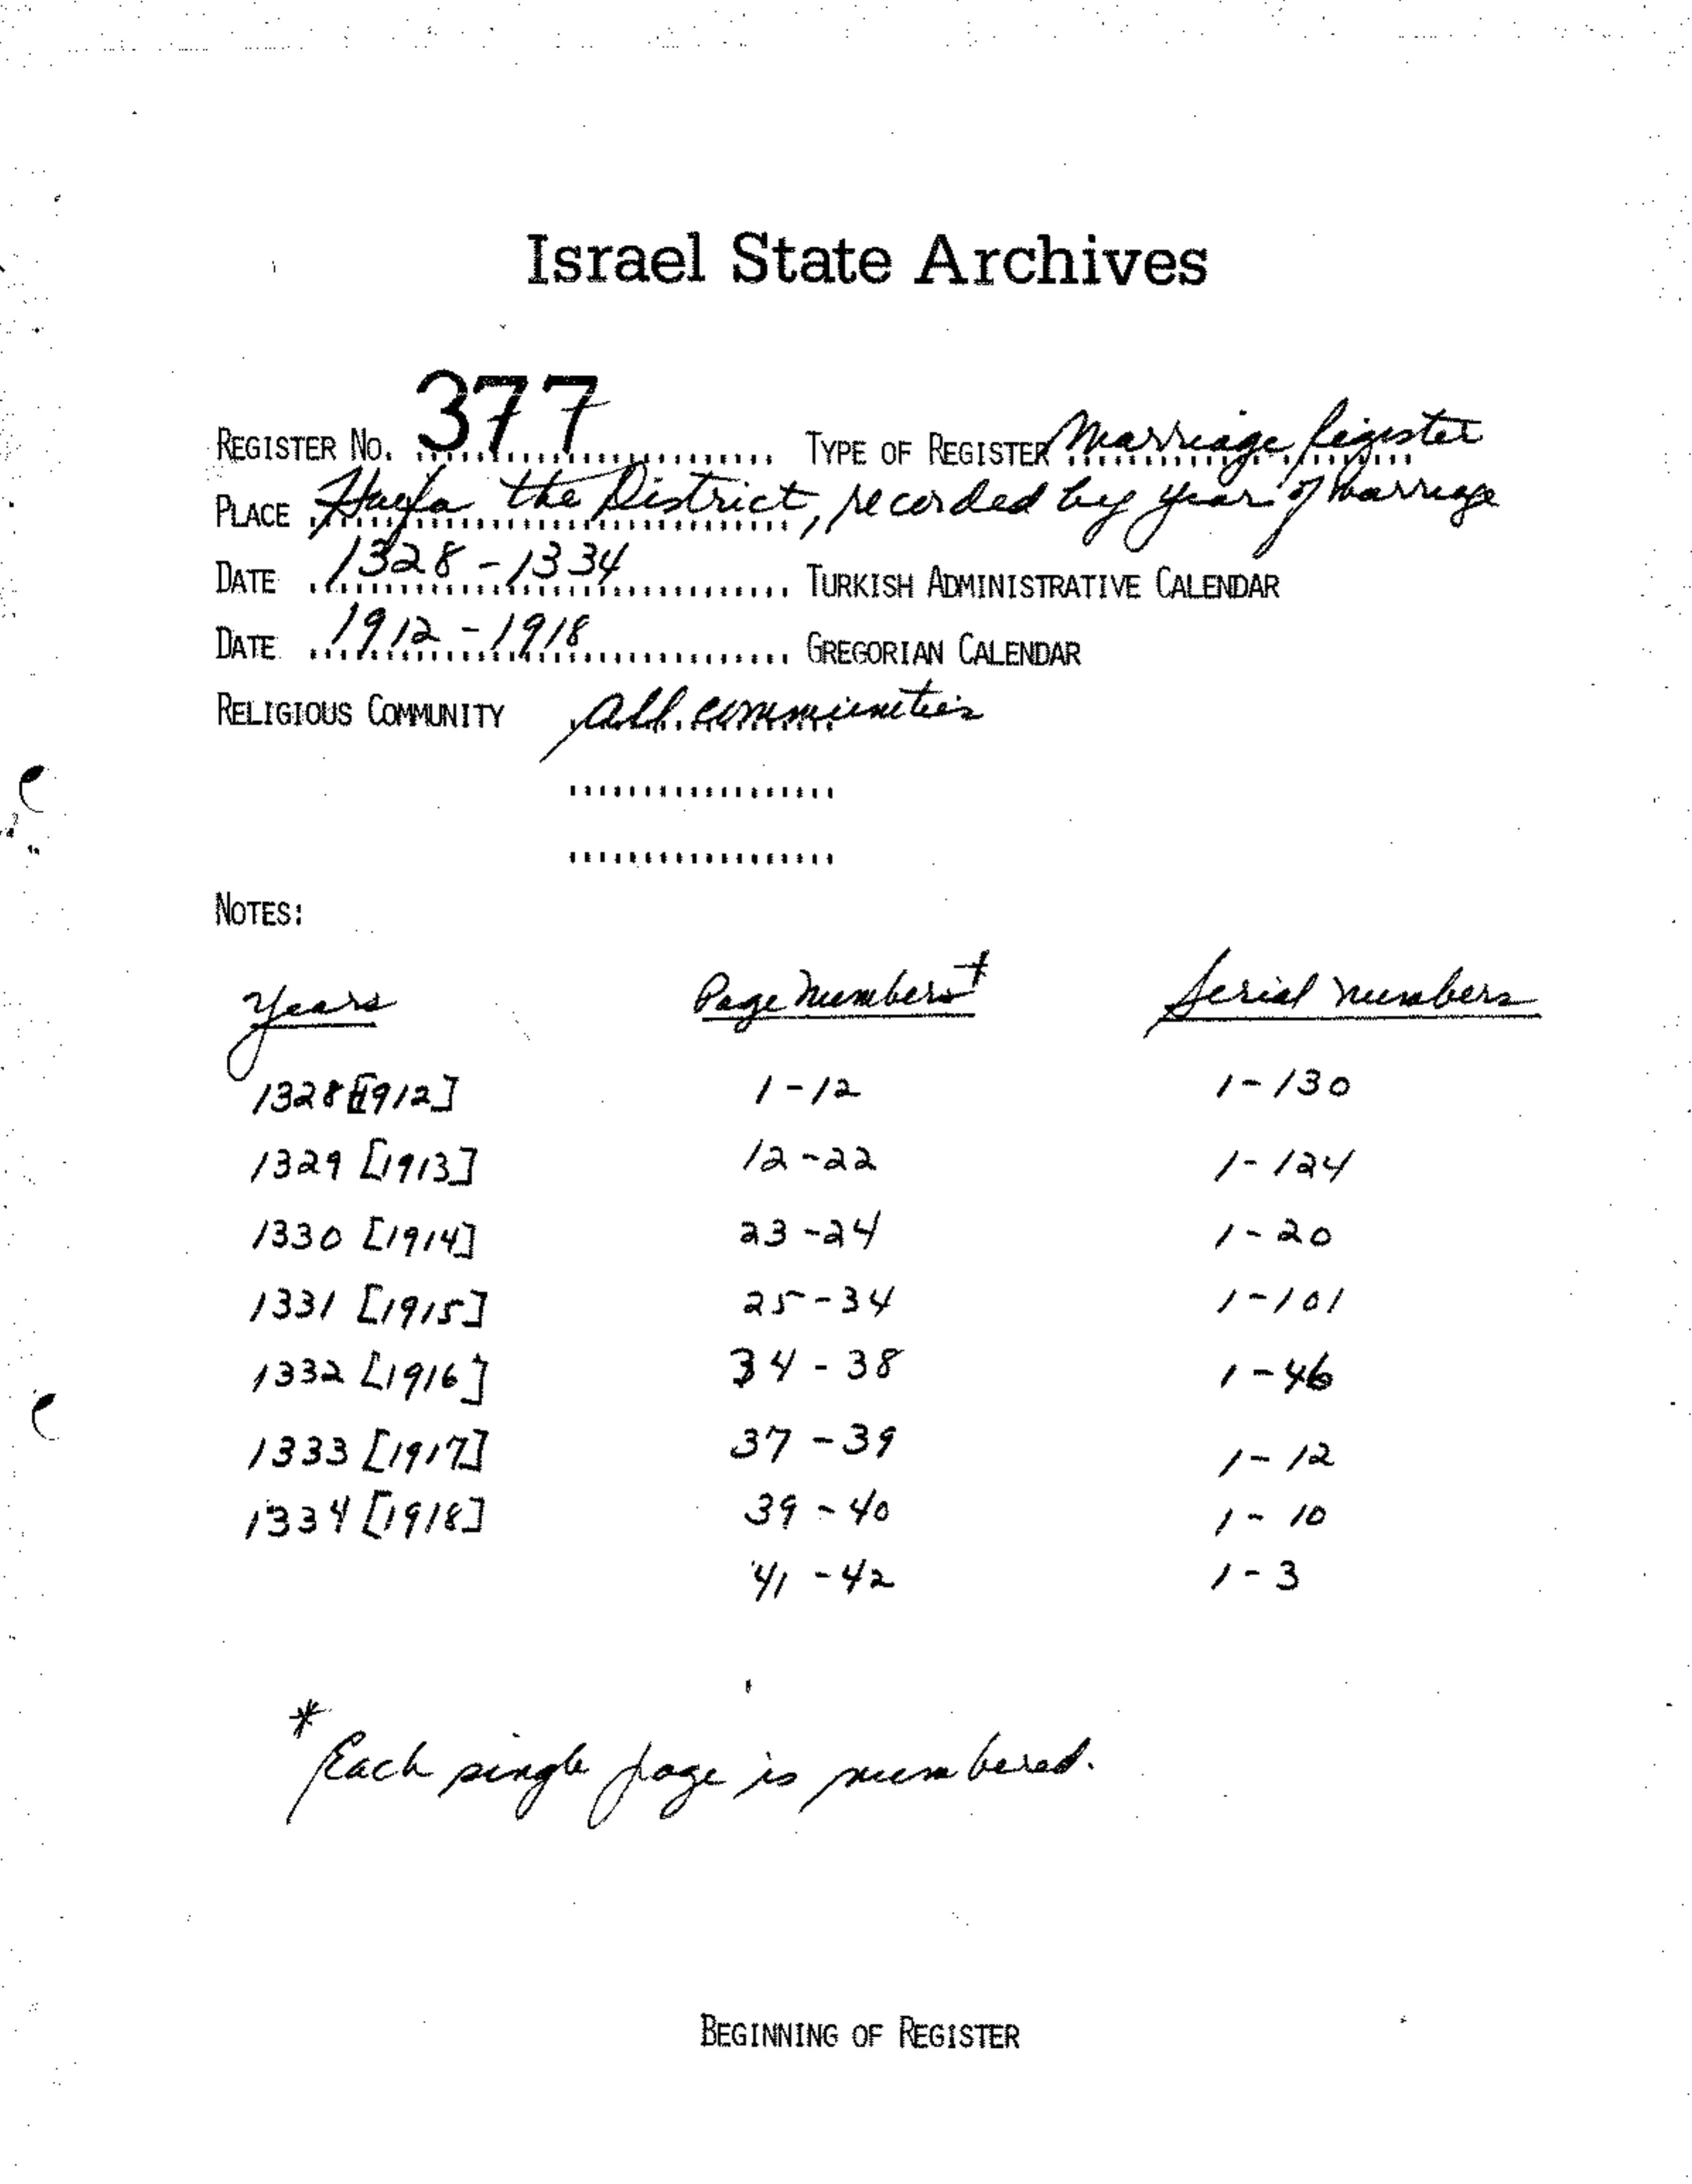 Israel State Archives
REGISTER No. 377 TYPE OF REGISTER Marriage Register
PLACE Haifa the District, recorded by year of marriage
DATE 1328-1334 TURKISH ADMINISTRATIVE CALENDAR
DATE 1912-1918 GREGORIAN CALENDAR
RELIGIOUS COMMUNITY all communities
NOTES:
Years Page Numbers* Serial numbers
1328 [1912] 1-12 1-130
1329 [1913] 12-22 1-124
1330 [1914] 23-24 1-20
1331 [1915] 25-34 1-101
1332 [1916] 34-38 1-46
1333 [1917] 37-39 1-12
1334 [1918] 39-40 1-10
41-42 1-3
* Each single page is numbered.
BEGINNING OF REGISTER